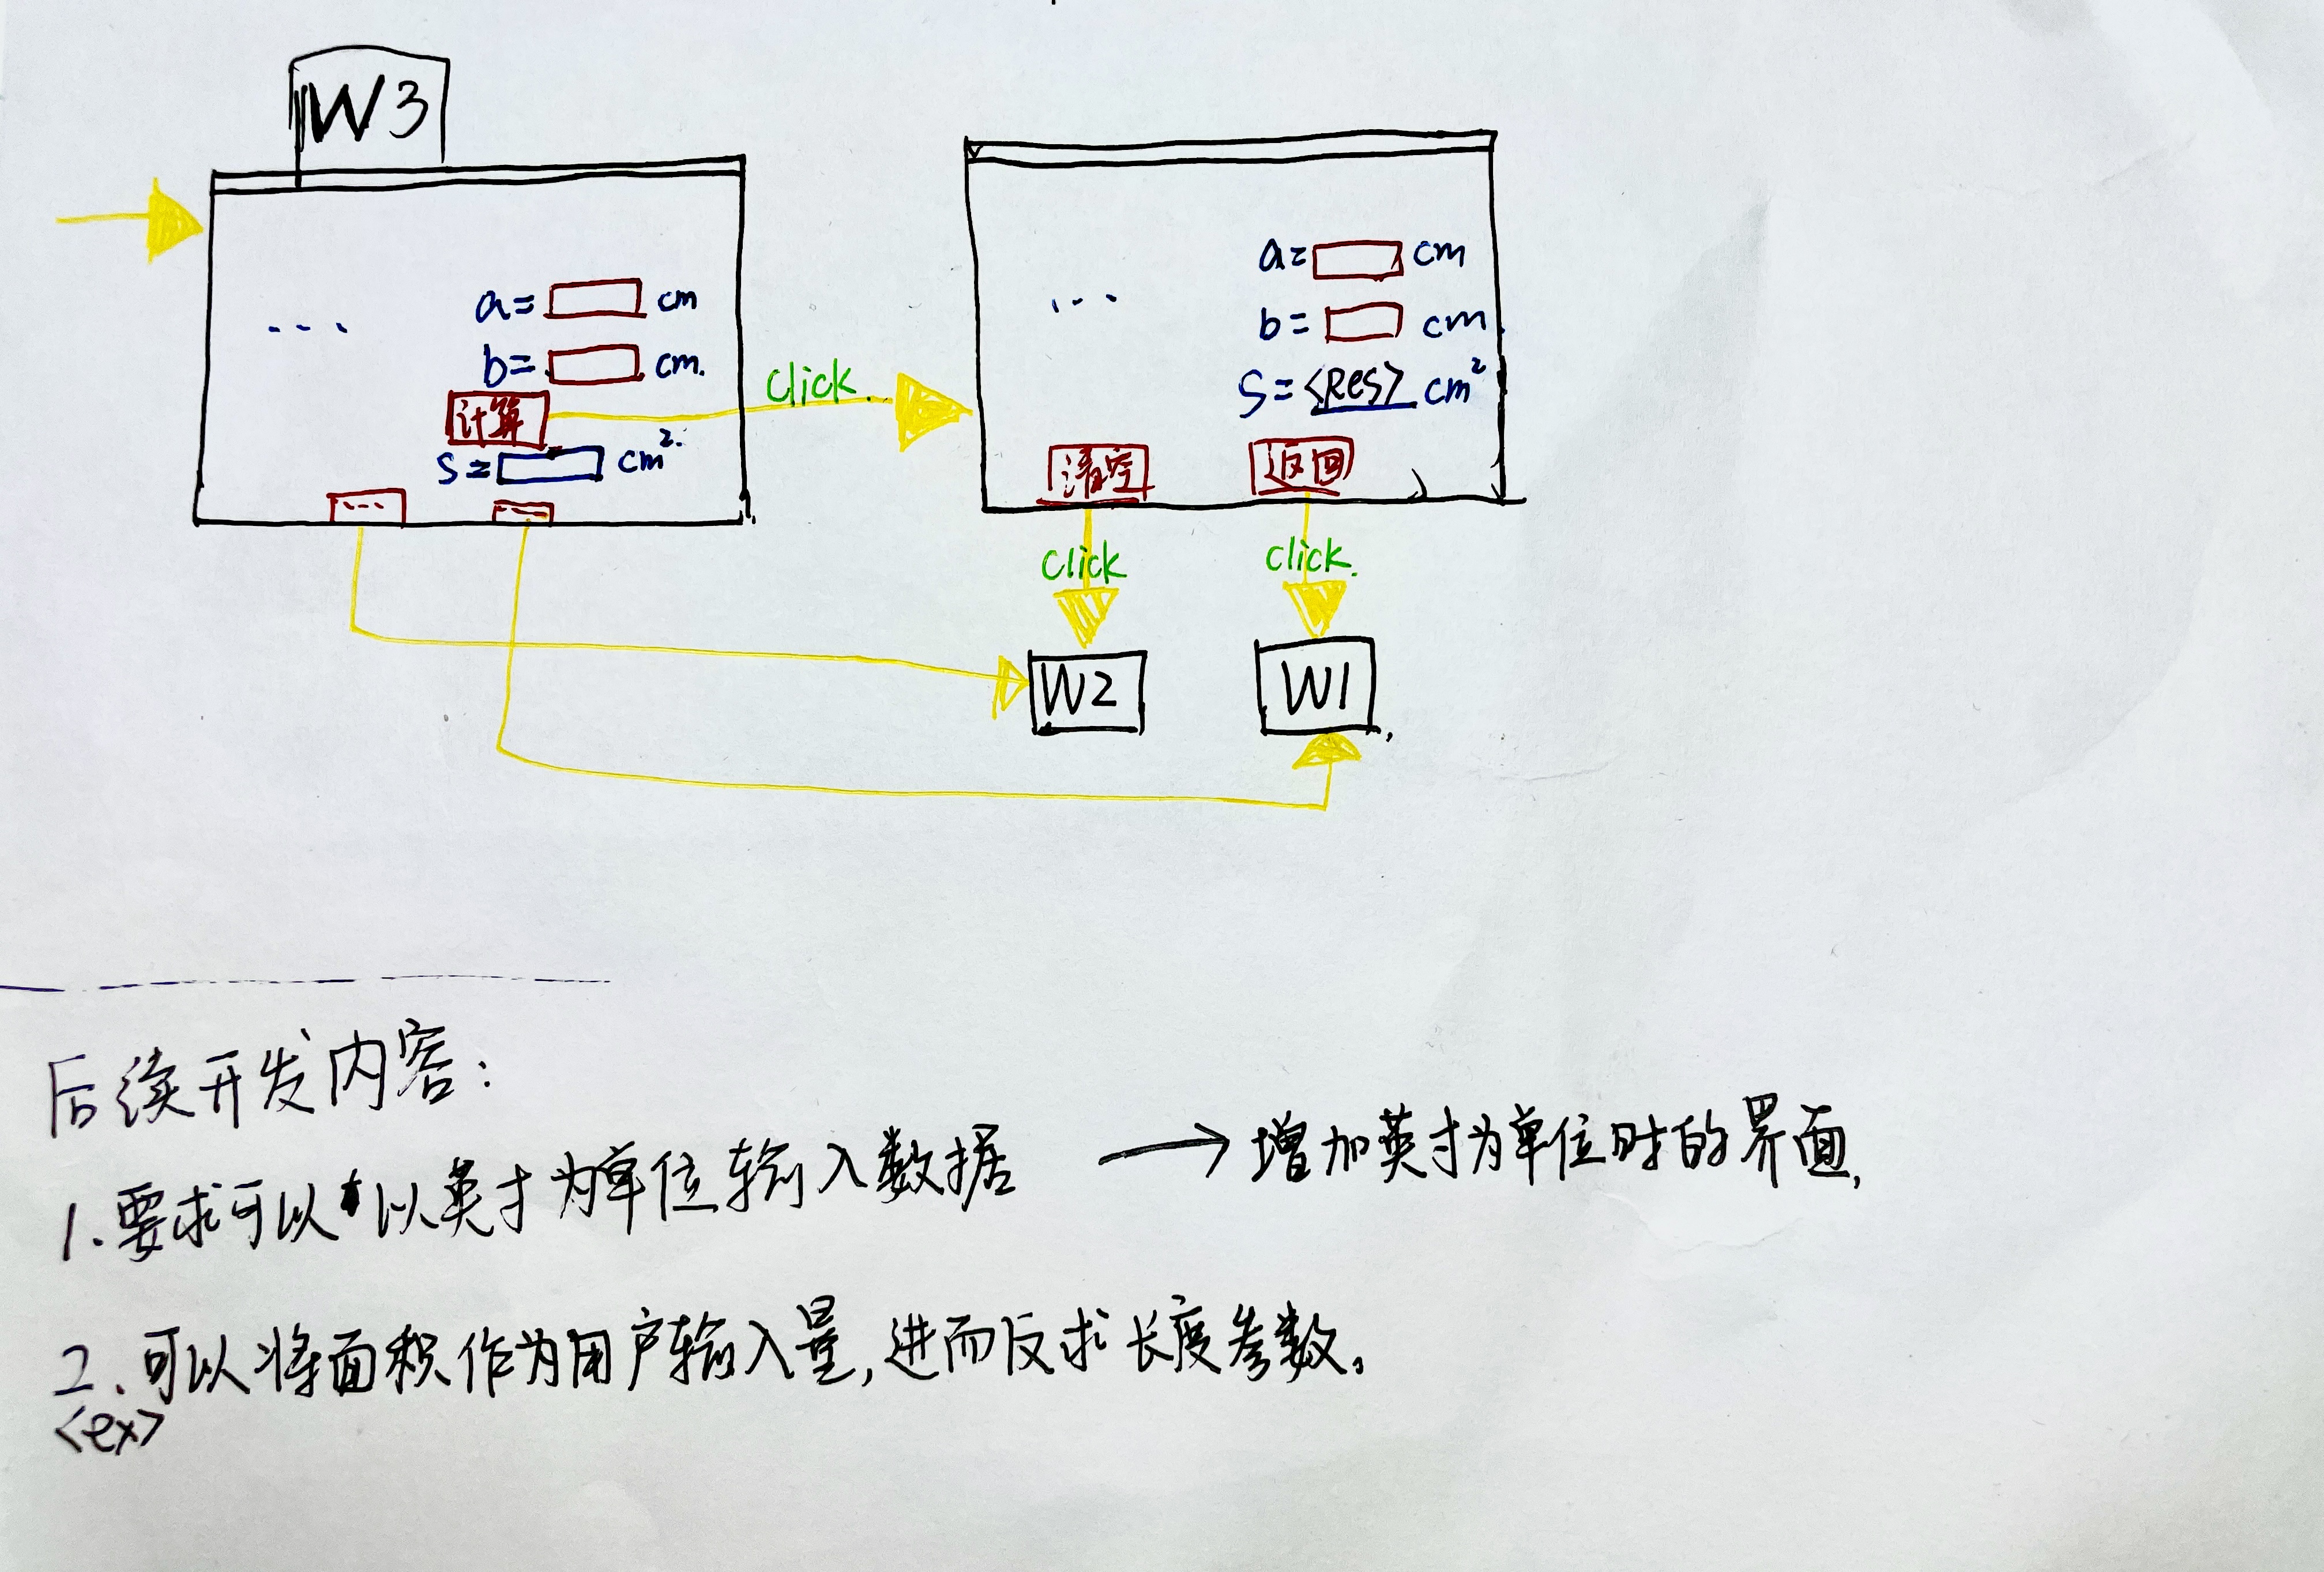 W3
...
a= cm
b= cm.
计算
S= cm².
...
...
click.
...
a= cm
b= cm.
S=<Res> cm²
清空 返回
click click.
W2 W1
后续开发内容:
1.要求可以以英寸为单位输入数据 → 增加英寸为单位时的界面.
2.可以将面积作为用户输入量,进而反求长度参数。
<ex>